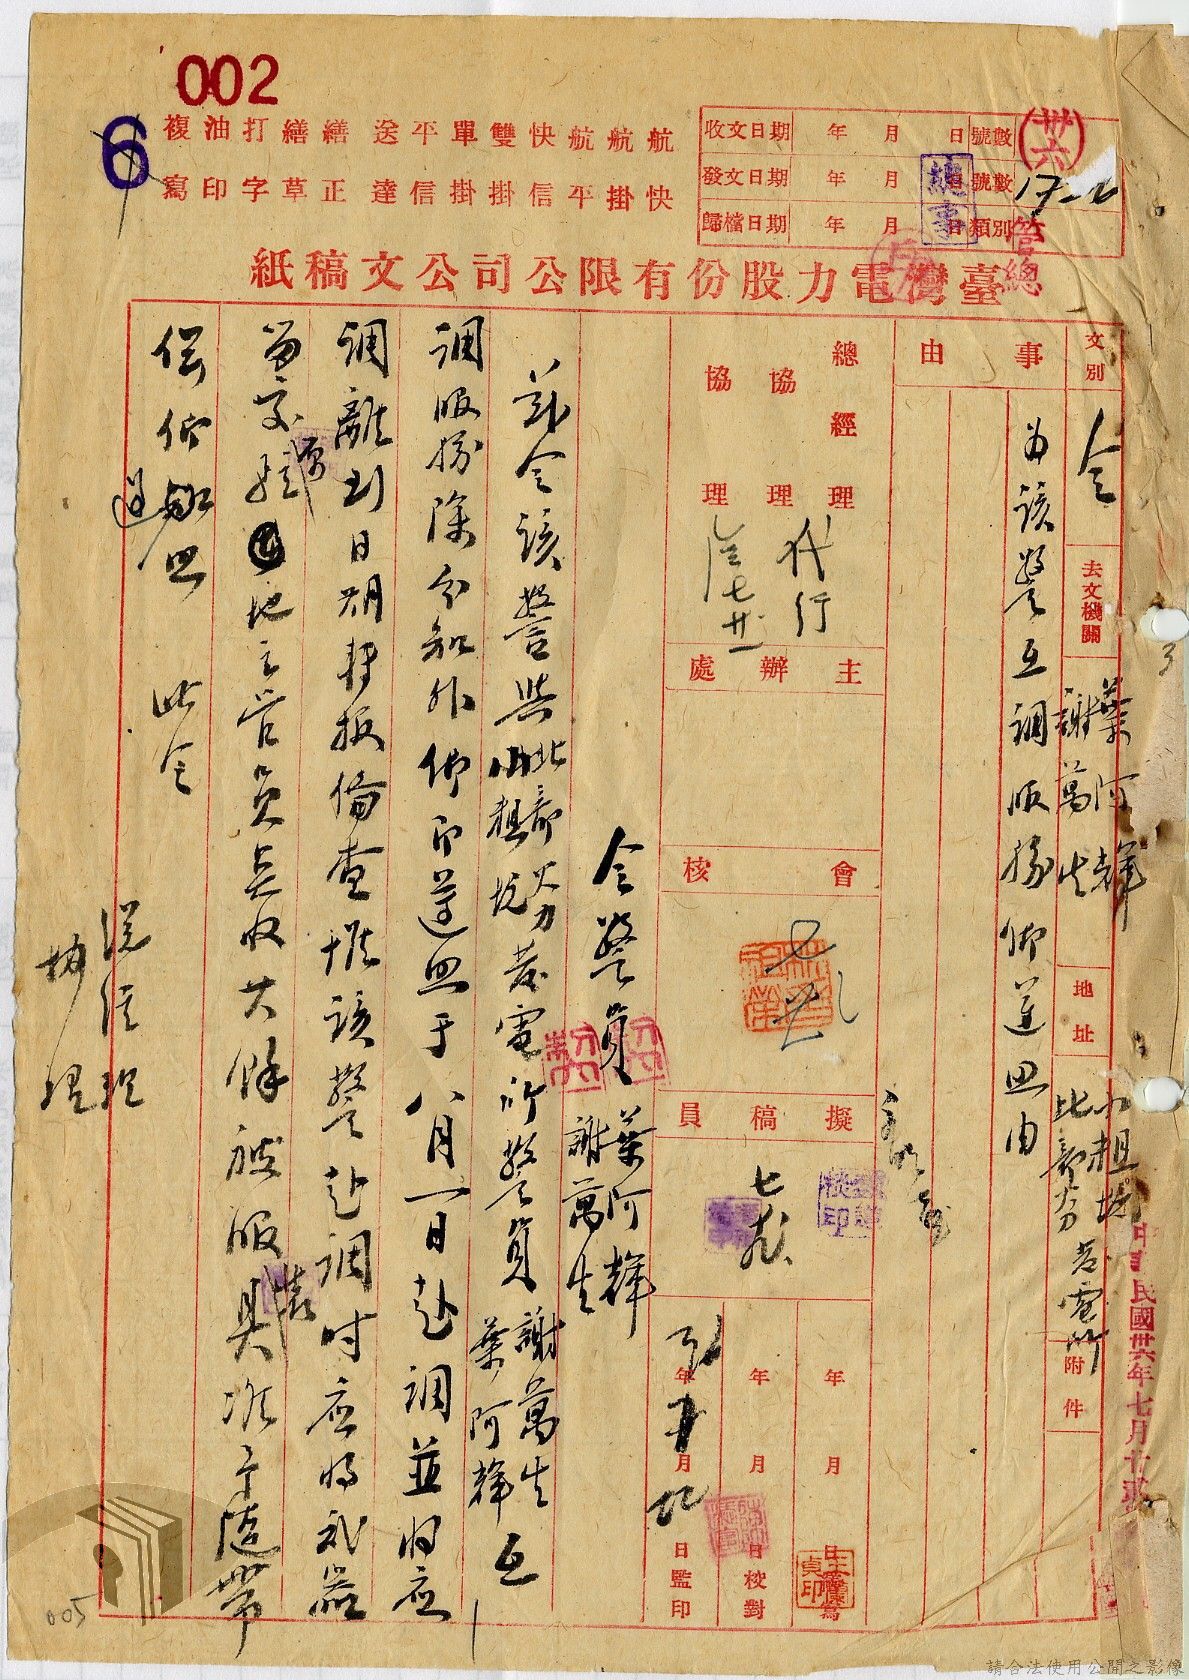 002
6
航快
航掛
航平
快信
雙掛
單掛
平信
送達
繕正
繕草
打字
油印
複寫
收文日期 年 月 日 號數
發文日期 年 月 日 號數
歸檔日期 年 月 日 類別
卅六
管總
總事
臺灣電力股份有限公司公文稿紙
文別 令
去文機關 葉阿輝 謝萬生
地址 小粗坑 北部火力發電所
附件
中華民國卅六年七月
事由 為該警互調服務仰遵照由
總經理
協理 代行
協理
主辦處
會核
擬稿員
年 月 日
年 月 日校對
年 月 日監印
令警員 葉阿輝 謝萬生
茲令該警與 北部火力 小粗坑 發電所警員 謝萬生 葉阿輝 互
調服務除分知外仰即遵照于八月一日赴調並將應
調離到日期轉報備查惟該警赴調時應將武器
留交原地主管員點收其餘被服具准予隨帶
併仰遵照 此令
總經理
協理
005
請合法使用公開之影像